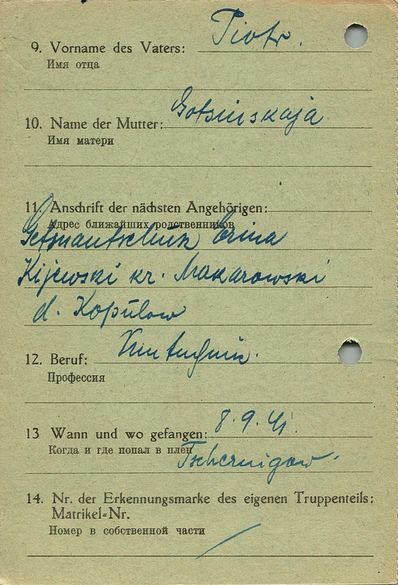 9. Vorname des Vaters: Piotr.
Имя отца
10. Name der Mutter:
Имя матери
11. Anschrift der nächsten Angehörigen:
Адрес ближайших родственников
Kijewski kr. Makarowski
d. Kopülow
12. Beruf:
Профессия
13 Wann und wo gefangen: 8.9.41.
Когда и где попал в плен
Tschernigow.
14. Nr. der Erkennungsmarke des eigenen Truppenteils:
Matrikel-Nr.
Номер в собственной части